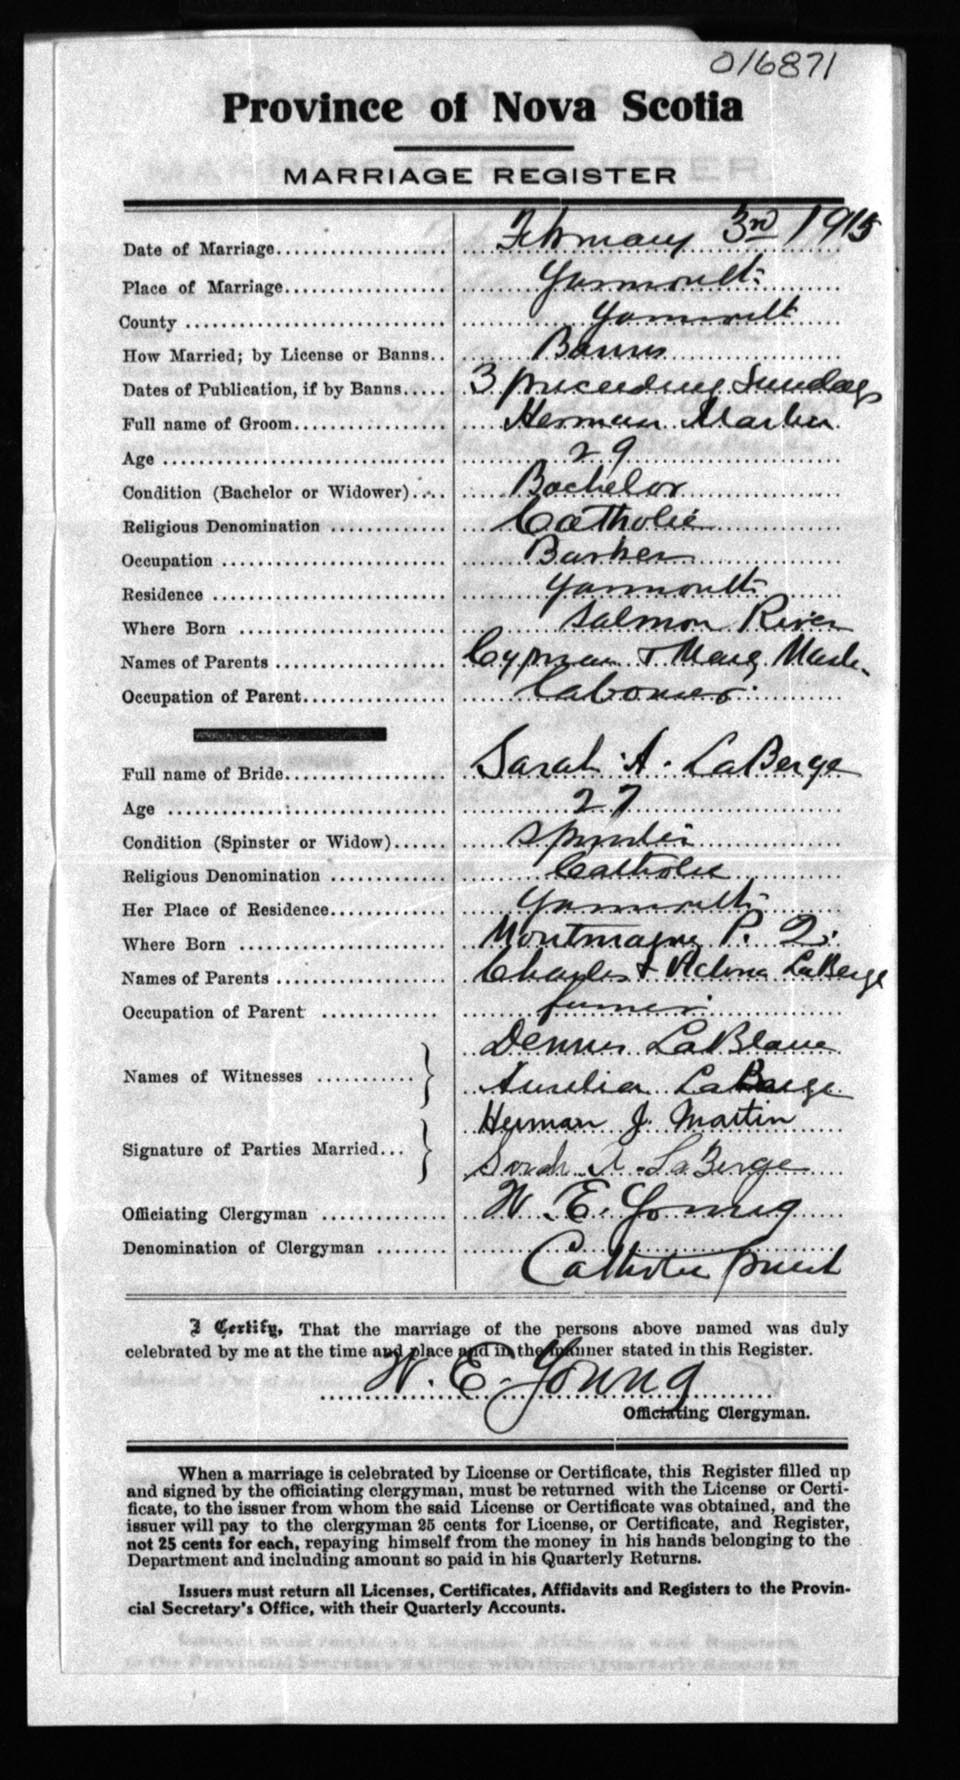 016871
Province of Nova Scotia
MARRIAGE REGISTER
Date of Marriage February 3rd 1915
Place of Marriage Yarmouth
County Yarmouth
How Married; by License or Banns Banns
Dates of Publication, if by Banns 3 preceeding Sundays
Full name of Groom Herman Martin
Age 29
Condition (Bachelor or Widower) Bachelor
Religious Denomination Catholic
Occupation Barber
Residence Yarmouth
Where Born Salmon River
Names of Parents Cyprian & Marg
Occupation of Parent Labourer
Full name of Bride Sarah A. LaBerge
Age 27
Condition (Spinster or Widow) Spinster
Religious Denomination Catholic
Her Place of Residence Yarmouth
Where Born Montmagny P. Q.
Names of Parents Charles & LaBerge
Occupation of Parent
Names of Witnesses Dennis LaBlanc
Aurelia LaBarge
Signature of Parties Married Herman J. Martin
Sarah A. LaBerge
Officiating Clergyman W. E. Young
Denomination of Clergyman Catholic priest
I Certify, That the marriage of the persons above named was duly
celebrated by me at the time and place and in the manner stated in this Register.
W. E. Young
Officiating Clergyman.
When a marriage is celebrated by License or Certificate, this Register filled up
and signed by the officiating clergyman, must be returned with the License or Certi-
ficate, to the issuer from whom the said License or Certificate was obtained, and the
issuer will pay to the clergyman 25 cents for License, or Certificate, and Register,
not 25 cents for each, repaying himself from the money in his hands belonging to the
Department and including amount so paid in his Quarterly Returns.
Issuers must return all Licenses, Certificates, Affidavits and Registers to the Provin-
cial Secretary's Office, with their Quarterly Accounts.